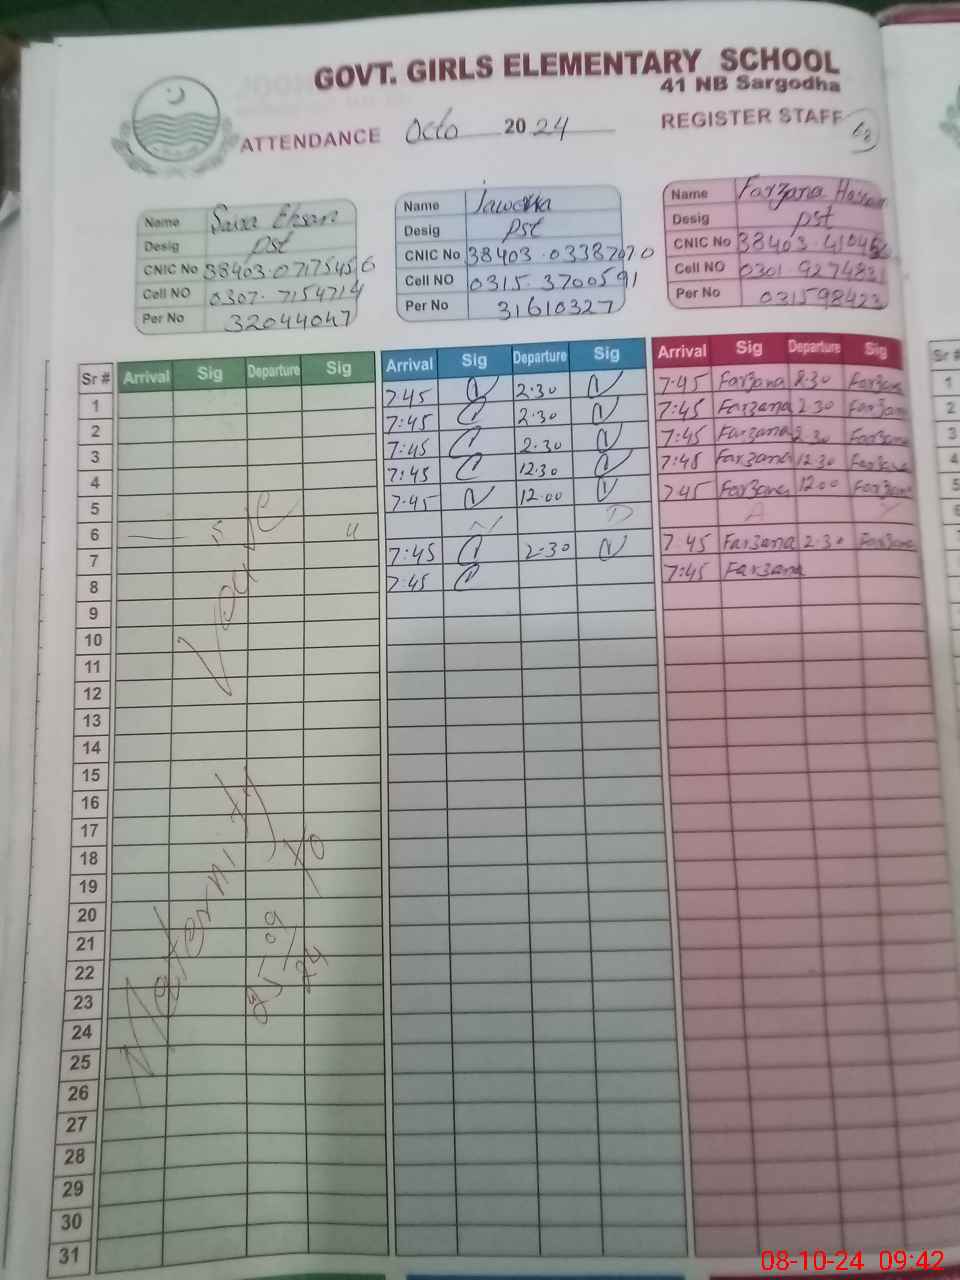 GOVT. GIRLS ELEMENTARY SCHOOL
41 NB Sargodha
ATTENDANCE Octo 2024 REGISTER STAFF
Name Saira Ehsan
Desig pst
CNIC No 38403.07175456
Cell NO 0307.7154714
Per No 32044047
Name
Desig pst
CNIC No 38403.03387070
Cell NO 0315.3700591
Per No 31610327
Name Farzana
Desig pst
CNIC No 38403.
Cell NO
Per No
Sr # Arrival Sig Departure Sig Arrival Sig Departure Sig Arrival Sig Departure Sig
1 7:45 2:30 7:45 Farzana Farzana
2 7:45 2:30 7:45 Farzana 2:30 Farzana
3 7:45 2:30 7:45 Farzana 2:30 Farzana
4 7:45 12:30 7:45 Farzana 12:30 Farzana
5 7:45 12:00 7:45 Farzana 12:00 Farzana
6 S u N D A Y
7 7:45 2:30 7:45 Farzana 2:30 Farzana
8 7:45 7:45 Farzana
9
10
11
12
13
14
15
16
17
18
19
20
21
22
23
24
25
26
27
28
29
30
31
Maternity
08-10-24 09:42